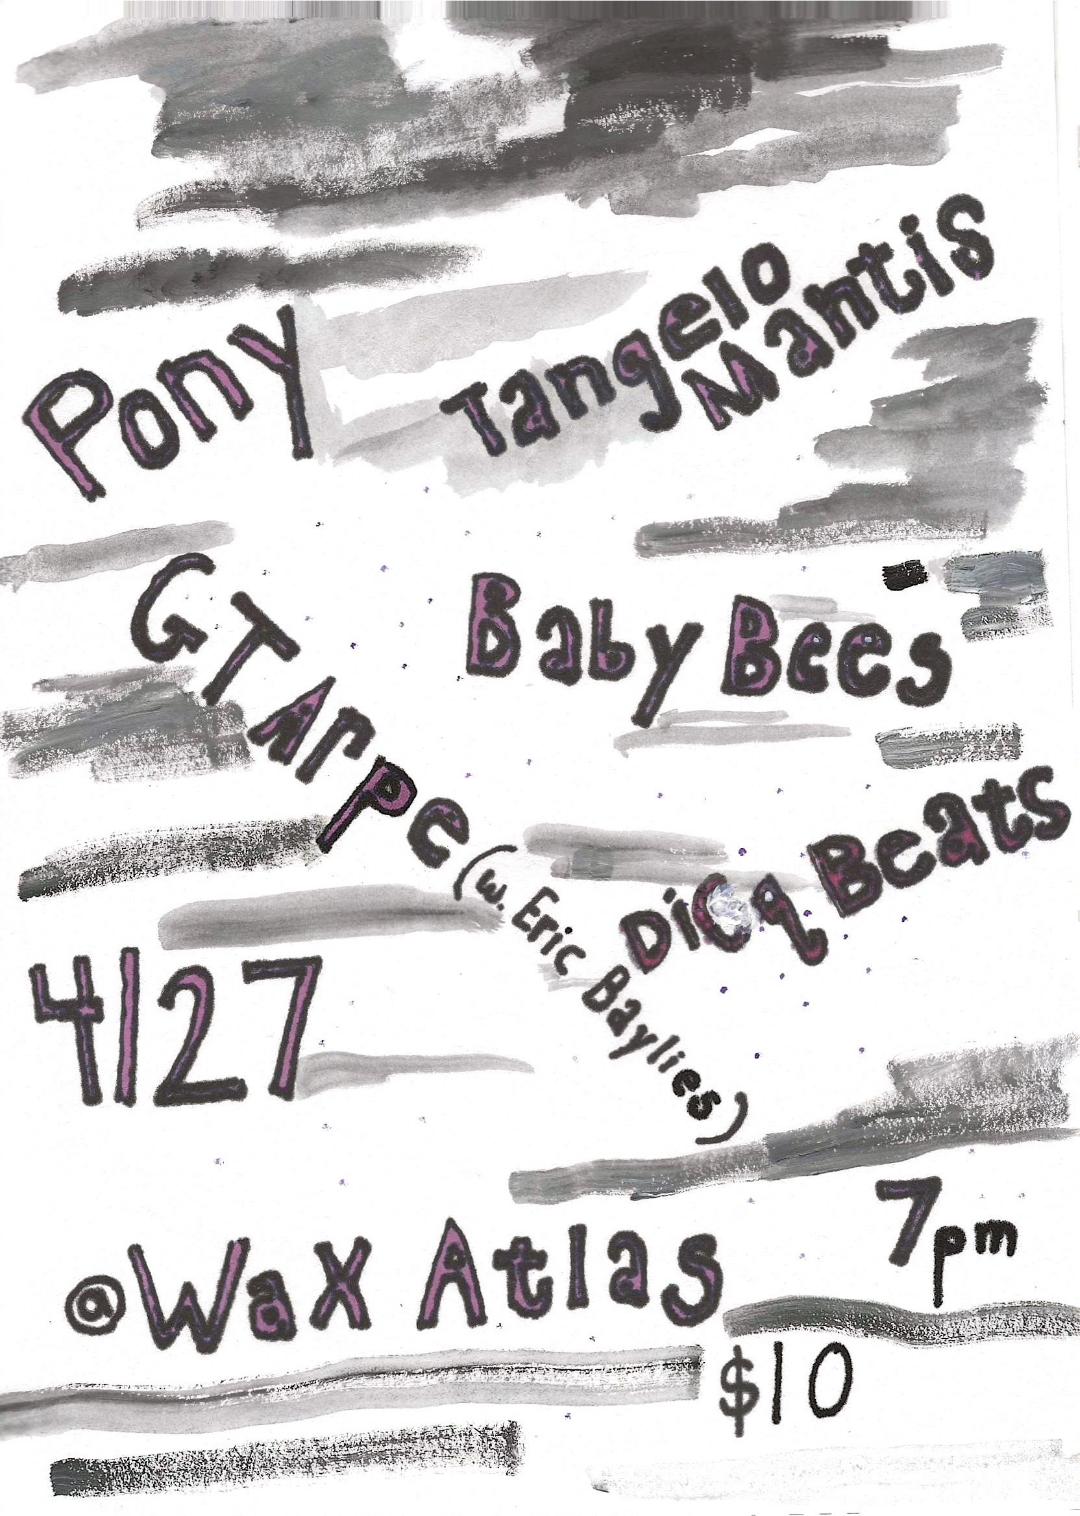 Pony
Tangelo
Mantis
GT Arpe
(w. Eric Baylies)
Baby Bees
DiCq Beats
4/27
7pm
@Wax Atlas
$10